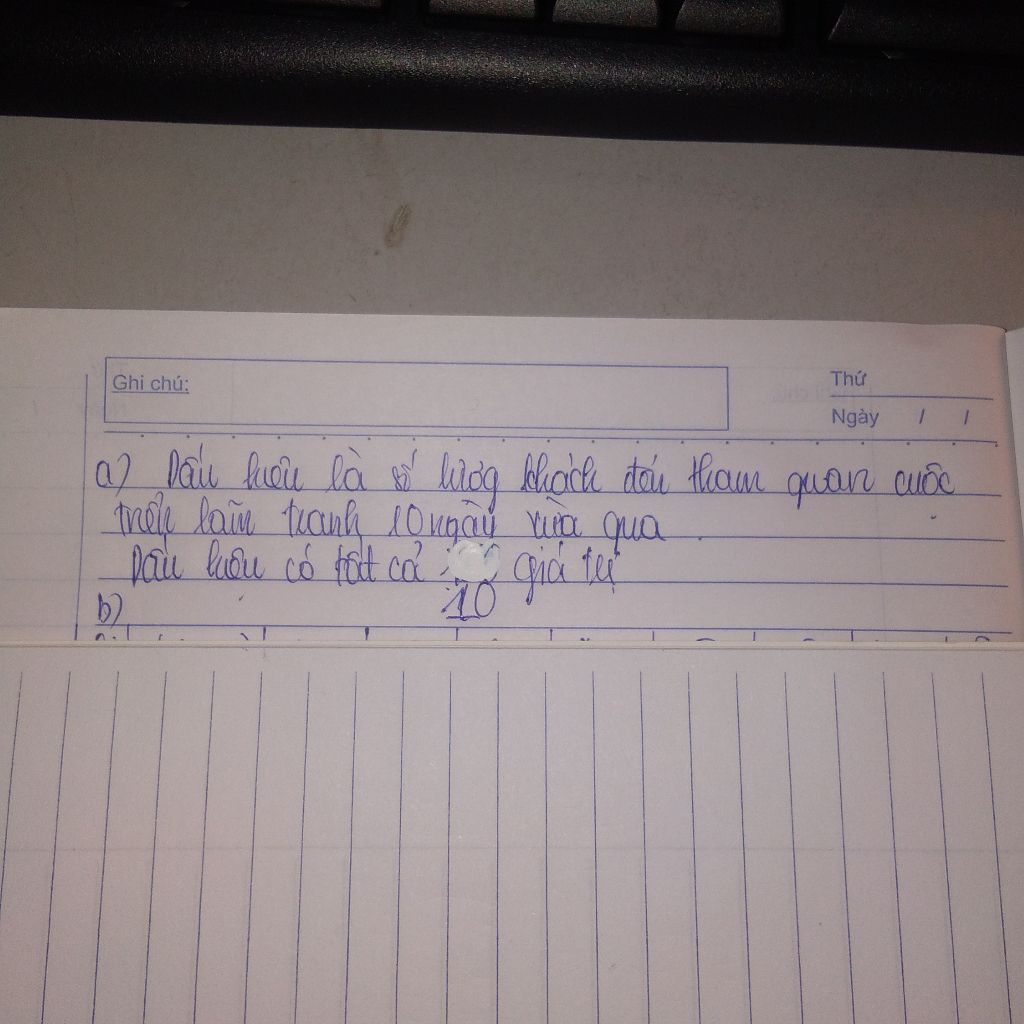 Ghi chú:
Thứ
Ngày / /
a) Dấu hiệu là số lượng khách đến tham quan cuộc
triển lãm tranh 10 ngày vừa qua
Dấu hiệu có tất cả giá trị
10
b)